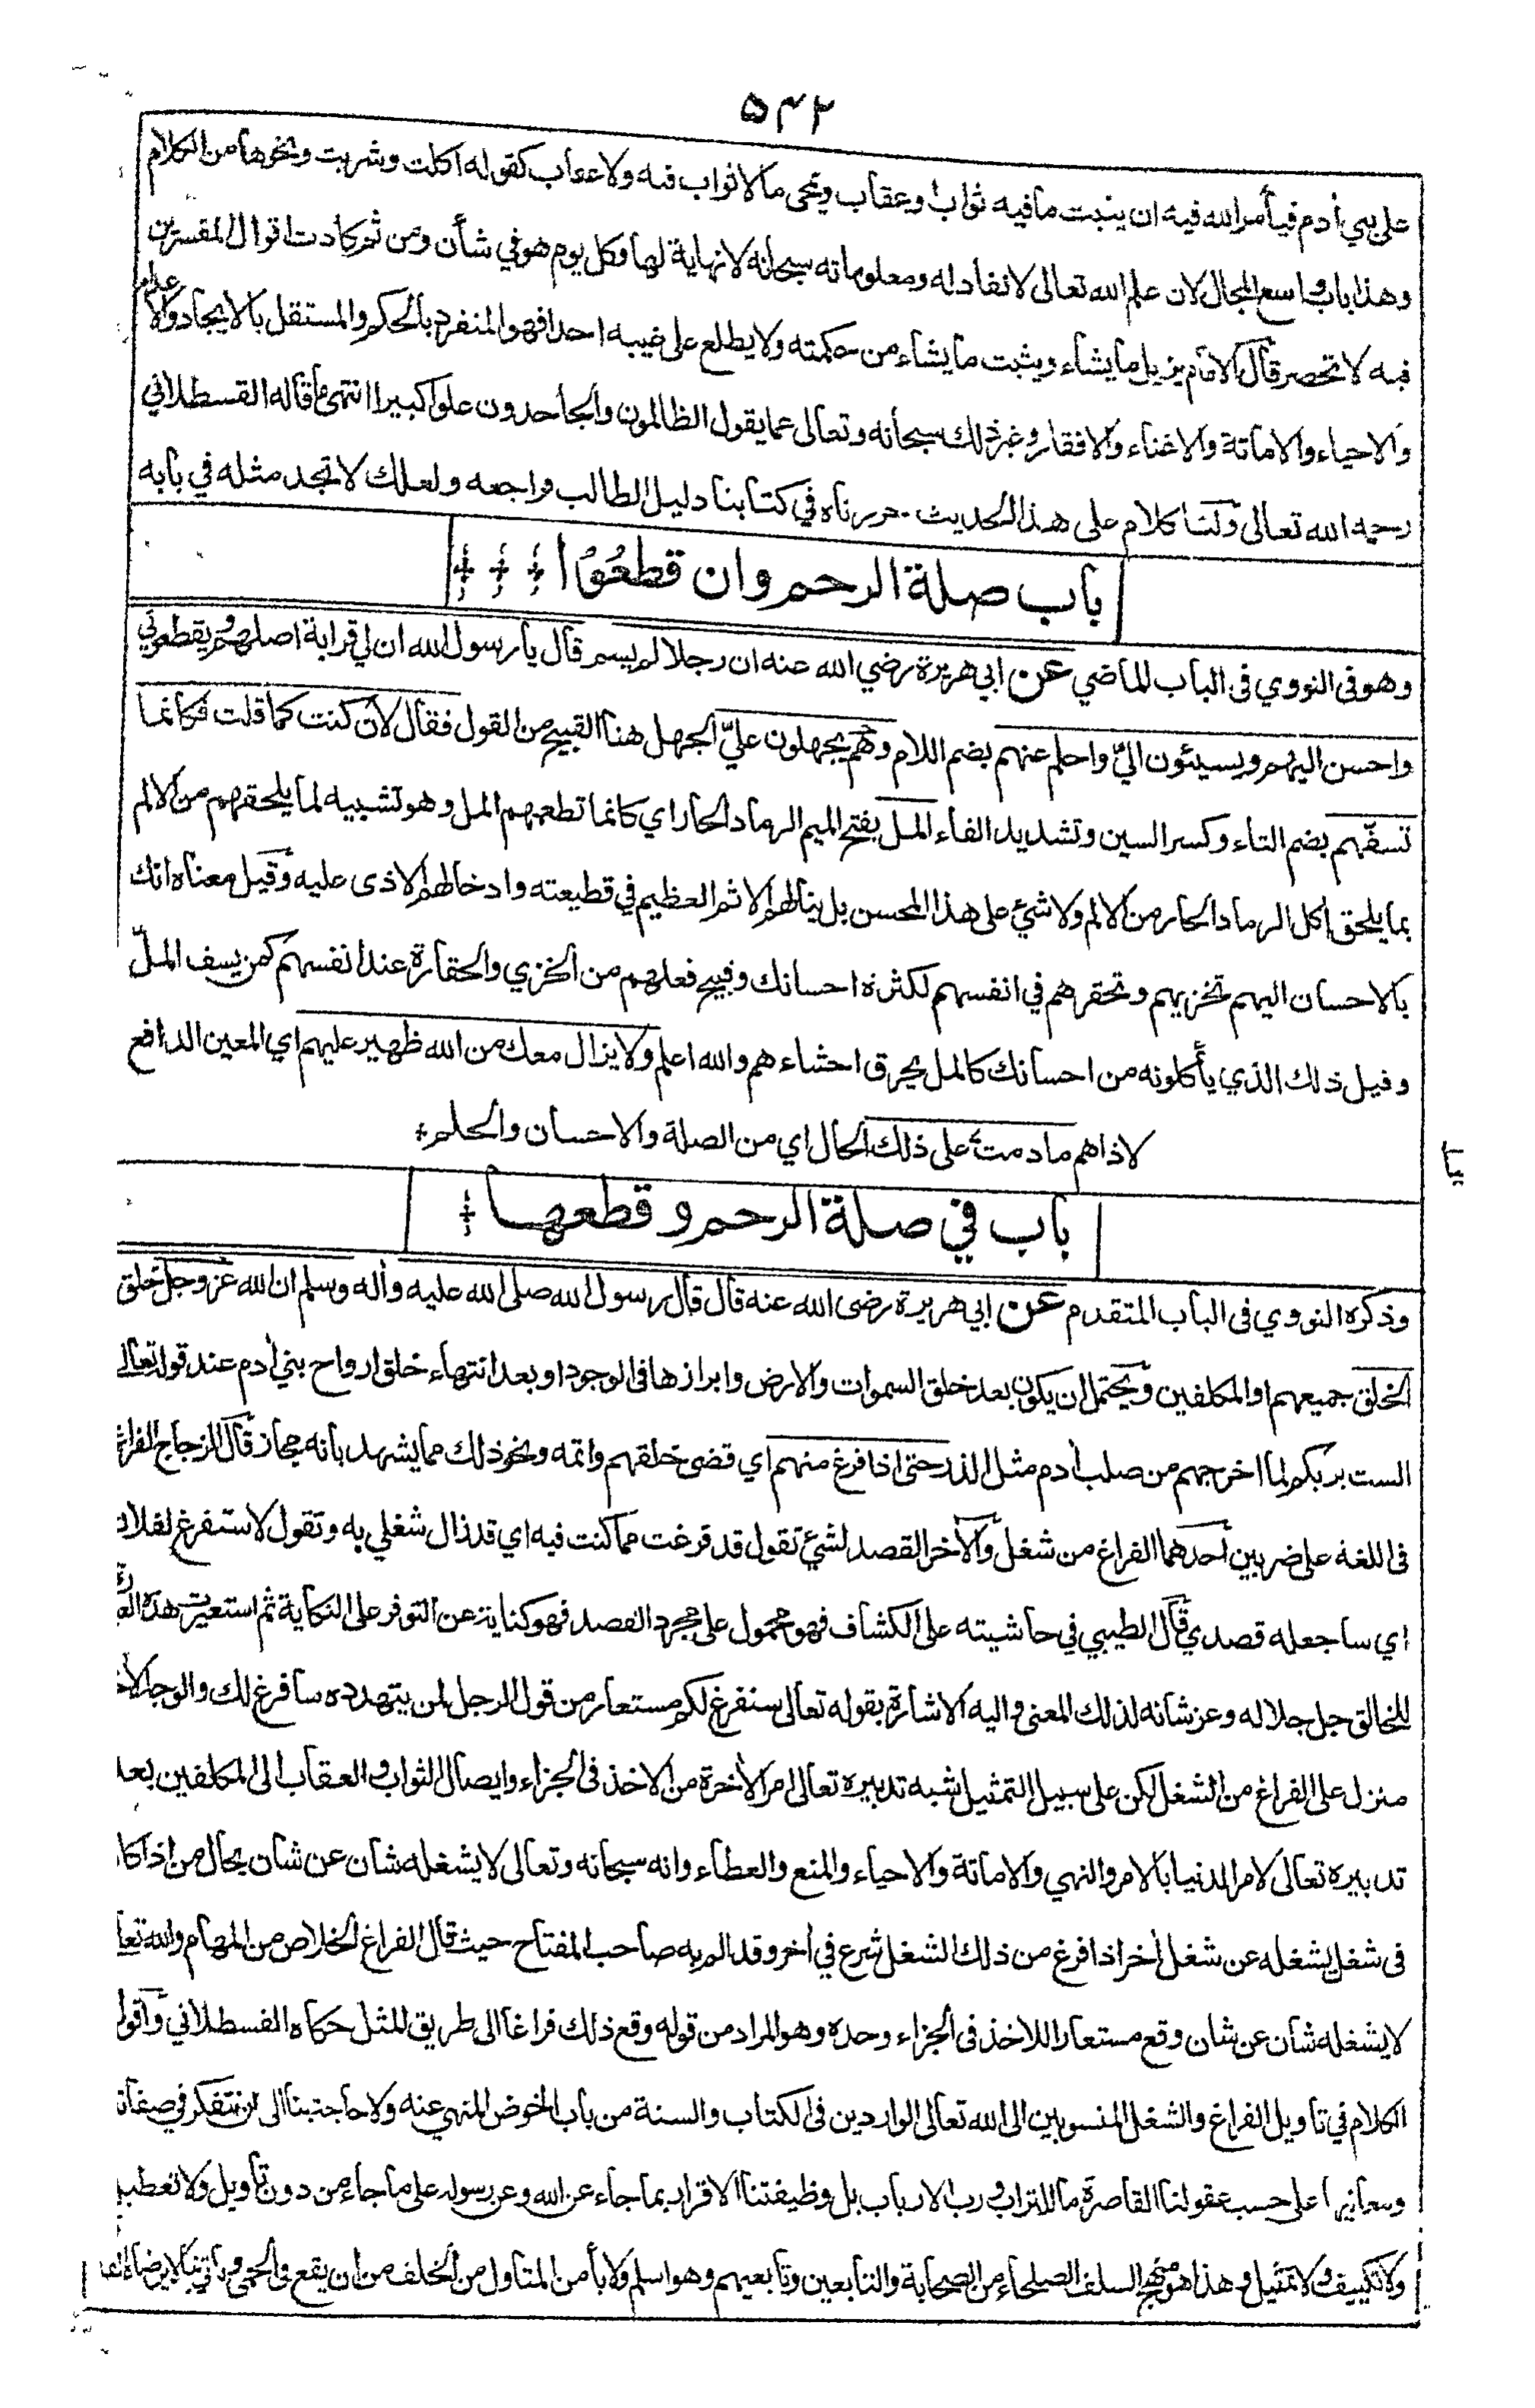 ٥٤٢
على بني أدم فيأمر الله فيه ان يثبت ما فيه ثواب وعقاب ويمحى ما لا ثواب فيه ولا عقاب كقوله اكلت وشربت ونحوها من الكلام
وهذا باب واسع المجال لان علم الله تعالى لا نفاد له ومعلوماته سبحانه لا نهاية لها وكل يوم هو في شأن ومن ثم كادت اقوال المفسرين
فيه لا تحصر قال الامام يزيل ما يشاء ويثبت ما يشاء من حكمته ولا يطلع على غيبه احدا فهو المنفرد بالحكم والمستقل بالايجاد والاعدام
والاحياء والاماتة والاغناء والافقار وغير ذلك سبحانه وتعالى عما يقول الظالمون والجاحدون علوا كبيرا انتهى ما قاله القسطلاني
رحمه الله تعالى ولنا كلام على هذا الحديث حررناه في كتابنا دليل الطالب فراجعه ولعلك لا تجد مثله في بابه
باب صلة الرحم وان قطعُوْا
وهو فى النووي فى الباب الماضي عن ابي هريرة رضي الله عنه ان رجلا لم يسم قال يا رسول الله ان لي قرابة اصلهم ويقطعوني
واحسن اليهم ويسيئون اليّ واحلم عنهم بضم اللام وهم يجهلون عليّ الجهل هنا القبيح من القول فقال لأن كنت كما قلت فكانما
تسفّهم بضم التاء وكسر السين وتشديد الفاء الملّ بفتح الميم الرماد الحار اي كانما تطعمهم المل وهو تشبيه لما يلحقهم من الالم
بما يلحق اكل الرماد الحار من الالم ولا شيء على هذا المحسن بل ينالهم الاثم العظيم في قطيعته وادخالهم الاذى عليه وقيل معناه انك
بالاحسان اليهم تخزيهم وتحقرهم في انفسهم لكثرة احسانك وقبيح فعلهم من الخزي والحقارة عند انفسهم كمن يسف الملّ
وقيل ذلك الذي يأكلونه من احسانك كالمل يحرق احشاءهم والله اعلم ولا يزال معك من الله ظهير عليهم اي المعين الدافع
لاذاهم ما دمت على ذلك الحال اي من الصلة والاحسان والحلم
باب في صلة الرحم وقطعها
وذكره النووي فى الباب المتقدم عن ابي هريرة رضى الله عنه قال قال رسول الله صلى الله عليه وأله وسلم ان الله عز وجل خلق
الخلق جميعهم او المكلفين ويحتمل ان يكون بعد خلق السموات والارض وابرازها فى الوجود او بعد انتهاء خلق ارواح بني أدم عند قوله تعالى
الست بربكم لما اخرجهم من صلب أدم مثل الذر حتى اذا فرغ منهم اي قضى خلقهم واتمه ونحو ذلك مما يشهد بانه مجاز قال الزجاج الفراغ
فى اللغة على ضربين أحدهما الفراغ من شغل والأخر القصد لشيء تقول قد فرغت مما كنت فيه اي قد زال شغلي به وتقول لاستفرغ لفلان
اي ساجعله قصدي قال الطيبي في حاشيته على الكشاف فهو محمول على مجرد القصد فهو كناية عن التوفر على النكاية ثم استعيرت هذه
للخالق جل جلاله وعز شانه لذلك المعنى واليه الاشارة بقوله تعالى سنفرغ لكم مستعار من قول الرجل لمن يتهدده سافرغ لك والوجه
منزل على الفراغ من الشغل لكن على سبيل التمثيل شبه تدبيره تعالى امر الأخرة من الاخذ فى الجزاء وايصال الثواب والعقاب الى المكلفين بعد
تدبيره تعالى لامر الدنيا بالامر والنهي والاماتة والاحياء والمنع والعطاء وانه سبحانه وتعالى لا يشغله شأن عن شان بحال من اذا كا
فى شغل يشغله عن شغل أخر اذا فرغ من ذلك الشغل شرع في أخر وقد الم به صاحب المفتاح حيث قال الفراغ الخلاص من المهام والله تعا
لا يشغله شأن عن شان وقع مستعارا للاخذ فى الجزاء وحده وهو المراد من قوله وقع ذلك فراغا الى طريق المثل حكاه القسطلاني واقول
الكلام في تاويل الفراغ والشغل المنسوبين الى الله تعالى الواردين فى الكتاب والسنة من باب الخوض المنهي عنه ولا حاجة بنا الى ان نتفكر في صفاته
ومعانيها على حسب عقولنا القاصرة ما للتراب ورب الارباب بل وظيفتنا الاقرار بما جاء عن الله وعن رسوله على ما جاء من دون تأويل ولا تعطيل
ولا تكييف ولا تمثيل وهذا هو منهج السلف الصلحاء من الصحابة والتابعين وتابعيهم وهو اسلم ولا يأمن المتاول من الخلف من ان يقع فى الحمى